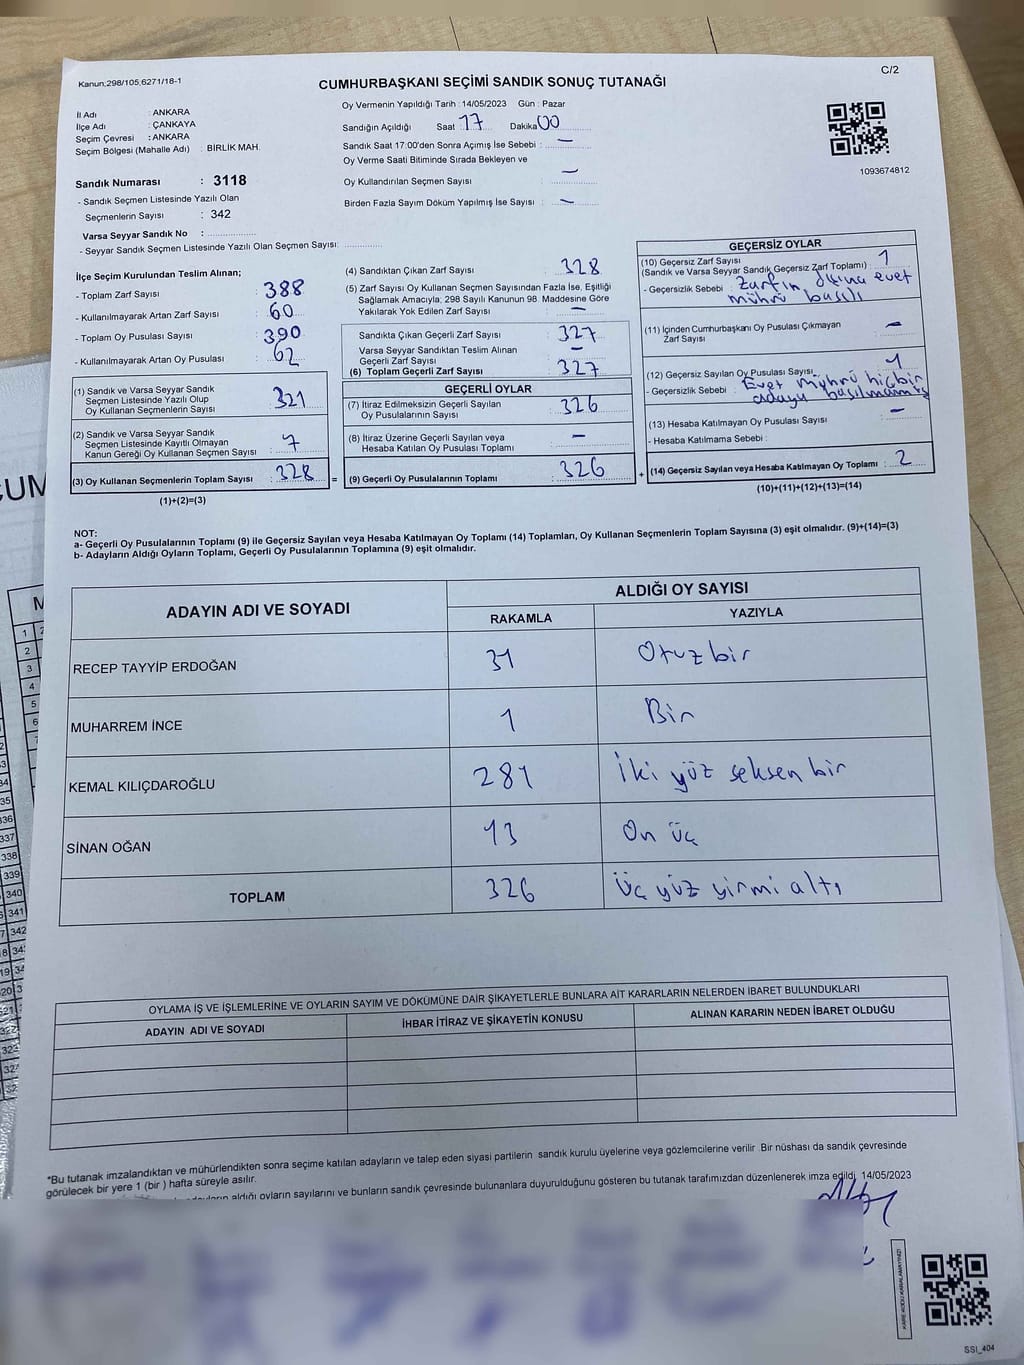 Kanun:298/105,6271/18-1
C/2
CUMHURBAŞKANI SEÇİMİ SANDIK SONUÇ TUTANAĞI
İl Adı : ANKARA
İlçe Adı : ÇANKAYA
Seçim Çevresi : ANKARA
Seçim Bölgesi (Mahalle Adı) : BİRLİK MAH.
Sandık Numarası : 3118
- Sandık Seçmen Listesinde Yazılı Olan
Seçmenlerin Sayısı : 342
Varsa Seyyar Sandık No :
- Seyyar Sandık Seçmen Listesinde Yazılı Olan Seçmen Sayısı:
Oy Vermenin Yapıldığı Tarih : 14/05/2023 Gün : Pazar
Sandığın Açıldığı Saat : 17 Dakika 00
Sandık Saat 17:00'den Sonra Açımış İse Sebebi : —
Oy Verme Saati Bitiminde Sırada Bekleyen ve
Oy Kullandırılan Seçmen Sayısı : —
Birden Fazla Sayım Döküm Yapılmış İse Sayısı : —
1093674812
İlçe Seçim Kurulundan Teslim Alınan;
- Toplam Zarf Sayısı : 388
- Kullanılmayarak Artan Zarf Sayısı : 60
- Toplam Oy Pusulası Sayısı : 390
- Kullanılmayarak Artan Oy Pusulası : 62
(1) Sandık ve Varsa Seyyar Sandık
Seçmen Listesinde Yazılı Olup
Oy Kullanan Seçmenlerin Sayısı : 321
(2) Sandık ve Varsa Seyyar Sandık
Seçmen Listesinde Kayıtlı Olmayan
Kanun Gereği Oy Kullanan Seçmen Sayısı : 7
(3) Oy Kullanan Seçmenlerin Toplam Sayısı : 328
(1)+(2)=(3)
(4) Sandıktan Çıkan Zarf Sayısı : 328
(5) Zarf Sayısı Oy Kullanan Seçmen Sayısından Fazla İse, Eşitliği
Sağlamak Amacıyla; 298 Sayılı Kanunun 98. Maddesine Göre
Yakılarak Yok Edilen Zarf Sayısı : —
Sandıkta Çıkan Geçerli Zarf Sayısı : 327
Varsa Seyyar Sandıktan Teslim Alınan
Geçerli Zarf Sayısı : —
(6) Toplam Geçerli Zarf Sayısı : 327
GEÇERLİ OYLAR
(7) İtiraz Edilmeksizin Geçerli Sayılan
Oy Pusulalarının Sayısı : 326
(8) İtiraz Üzerine Geçerli Sayılan veya
Hesaba Katılan Oy Pusulası Toplamı : —
= (9) Geçerli Oy Pusulalarının Toplamı : 326
GEÇERSİZ OYLAR
(10) Geçersiz Zarf Sayısı
(Sandık ve Varsa Seyyar Sandık Geçersiz Zarf Toplamı) : 1
- Geçersizlik Sebebi : Zarfın dışına evet
mührü basılı
(11) İçinden Cumhurbaşkanı Oy Pusulası Çıkmayan
Zarf Sayısı : —
(12) Geçersiz Sayılan Oy Pusulası Sayısı : 1
- Geçersizlik Sebebi : Evet mührü hiçbir
adaya basılmamış
(13) Hesaba Katılmayan Oy Pusulası Sayısı : —
- Hesaba Katılmama Sebebi :
+ (14) Geçersiz Sayılan veya Hesaba Katılmayan Oy Toplamı : 2
(10)+(11)+(12)+(13)=(14)
NOT:
a- Geçerli Oy Pusulalarının Toplamı (9) ile Geçersiz Sayılan veya Hesaba Katılmayan Oy Toplamı (14) Toplamları, Oy Kullanan Seçmenlerin Toplam Sayısına (3) eşit olmalıdır. (9)+(14)=(3)
b- Adayların Aldığı Oyların Toplamı, Geçerli Oy Pusulalarının Toplamına (9) eşit olmalıdır.
ADAYIN ADI VE SOYADI
ALDIĞI OY SAYISI
RAKAMLA YAZIYLA
RECEP TAYYİP ERDOĞAN 31 Otuz bir
MUHARREM İNCE 1 Bir
KEMAL KILIÇDAROĞLU 281 İki yüz seksen bir
SİNAN OĞAN 13 On üç
TOPLAM 326 Üç yüz yirmi altı
OYLAMA İŞ VE İŞLEMLERİNE VE OYLARIN SAYIM VE DÖKÜMÜNE DAİR ŞİKAYETLERLE BUNLARA AİT KARARLARIN NELERDEN İBARET BULUNDUKLARI
ADAYIN ADI VE SOYADI İHBAR İTİRAZ VE ŞİKAYETİN KONUSU ALINAN KARARIN NEDEN İBARET OLDUĞU
*Bu tutanak imzalandıktan ve mühürlendikten sonra seçime katılan adayların ve talep eden siyasi partilerin sandık kurulu üyelerine veya gözlemcilerine verilir. Bir nüshası da sandık çevresinde
görülecek bir yere 1 (bir ) hafta süreyle asılır.
aldığı oyların sayılarını ve bunların sandık çevresinde bulunanlara duyurulduğunu gösteren bu tutanak tarafımızdan düzenlenerek imza edildi. 14/05/2023
KARE KODU KARALAMAYINIZ!
SSI_404